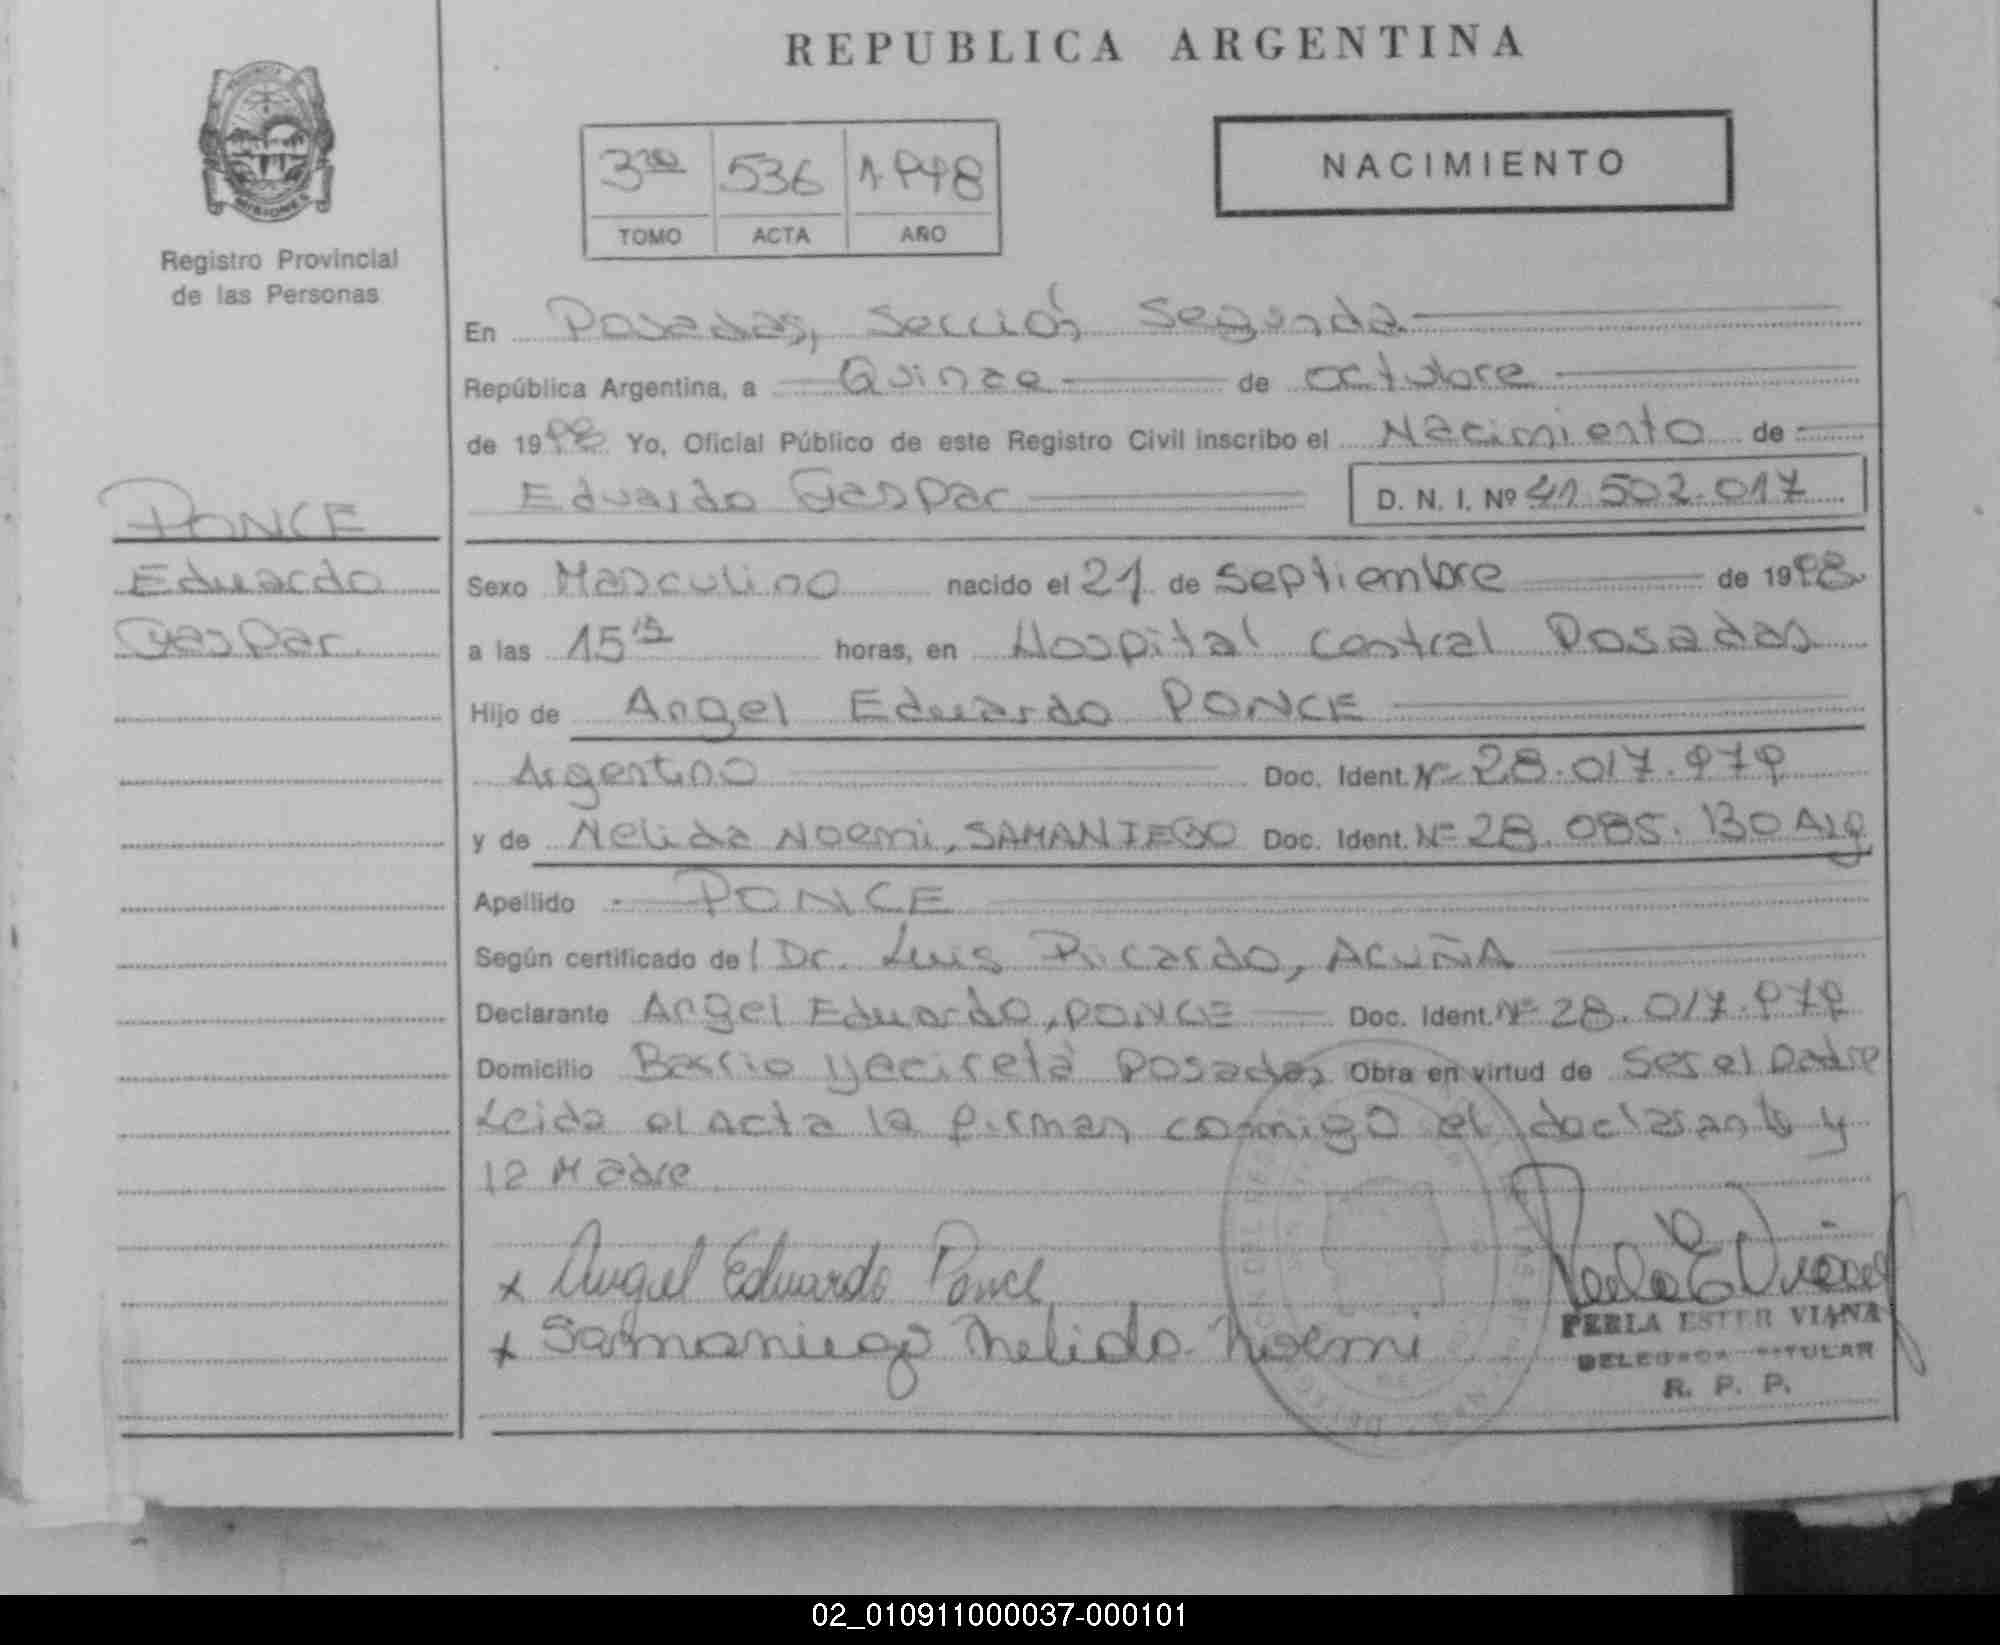 REPUBLICA ARGENTINA
MISIONES
Registro Provincial
de las Personas
3ro 536 1.998
TOMO ACTA AÑO
NACIMIENTO
En Posadas, Sección Segunda
República Argentina, a Quince de octubre
de 1998 Yo, Oficial Público de este Registro Civil inscribo el Nacimiento de
Eduardo Gaspar D. N. I. Nº 41.502.017
PONCE
Eduardo
Gaspar
Sexo Masculino nacido el 21 de Septiembre de 1998
a las 15 horas, en Hospital Central Posadas
Hijo de Angel Eduardo PONCE
Argentino Doc. Ident. Nº 28.017.979
y de Nelida Noemi, SAMANIEGO Doc. Ident. Nº 28.085.130 Arg
Apellido PONCE
Según certificado de l Dr. Luis Ricardo, ACUÑA
Declarante Angel Eduardo, PONCE Doc. Ident. Nº 28.017.979
Domicilio Barrio Yaciretá Posadas Obra en virtud de Ser el Padre
Leida el Acta la firman conmigo el declarante y
la Madre
x Angel Eduardo Ponce
x Samaniego Nelida Noemi
PERLA ESTER VIANA
DELEGADA TITULAR
R. P. P.
02_010911000037-000101